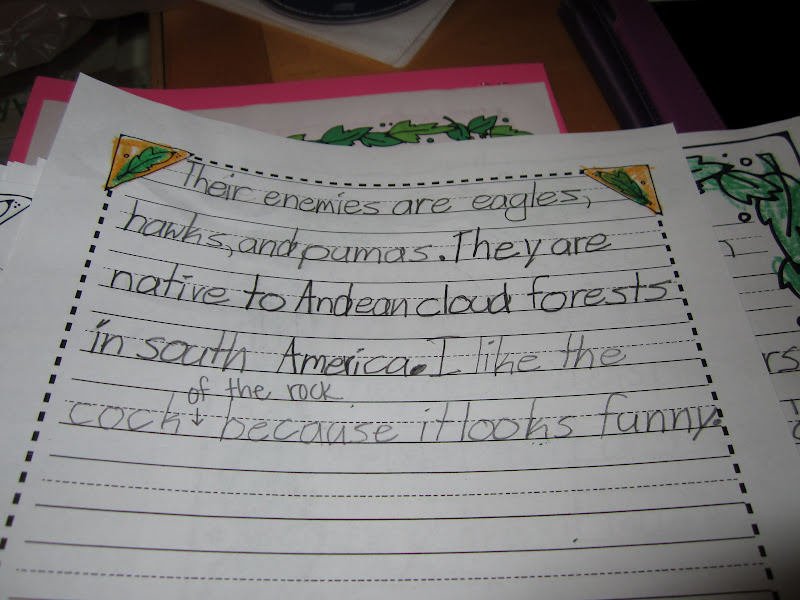 Their enemies are eagles,
hawks, and pumas. They are
native to Andean cloud forests
in south America. I like the
of the rock
cock↓ because it looks funny.
rs